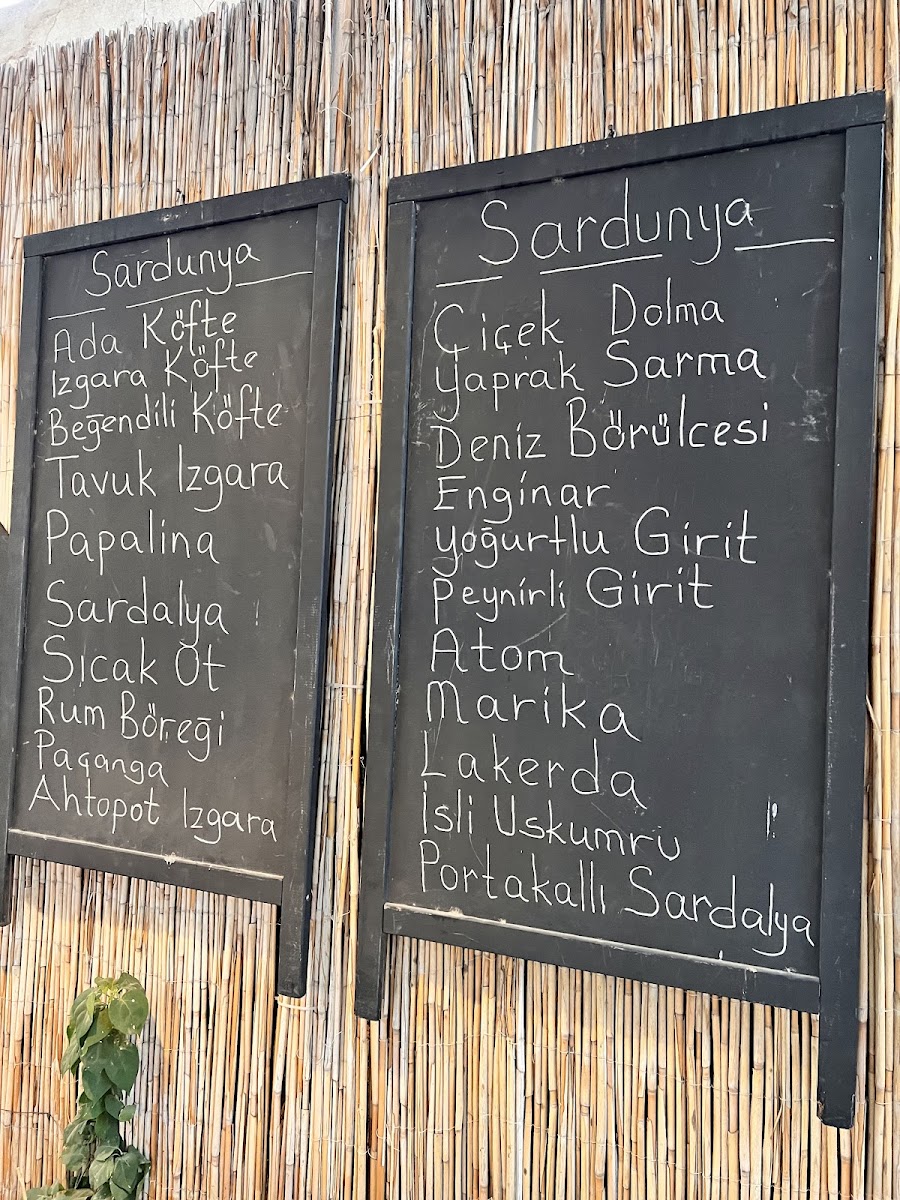 Sardunya
Ada Köfte
Izgara Köfte
Beğendili Köfte
Tavuk Izgara
Papalina
Sardalya
Sıcak Ot
Rum Böreği
Paçanga
Ahtopot Izgara
Sardunya
Çiçek Dolma
Yaprak Sarma
Deniz Börülcesi
Enginar
Yoğurtlu Girit
Peynirli Girit
Atom
Marika
Lakerda
İsli Uskumru
Portakallı Sardalya